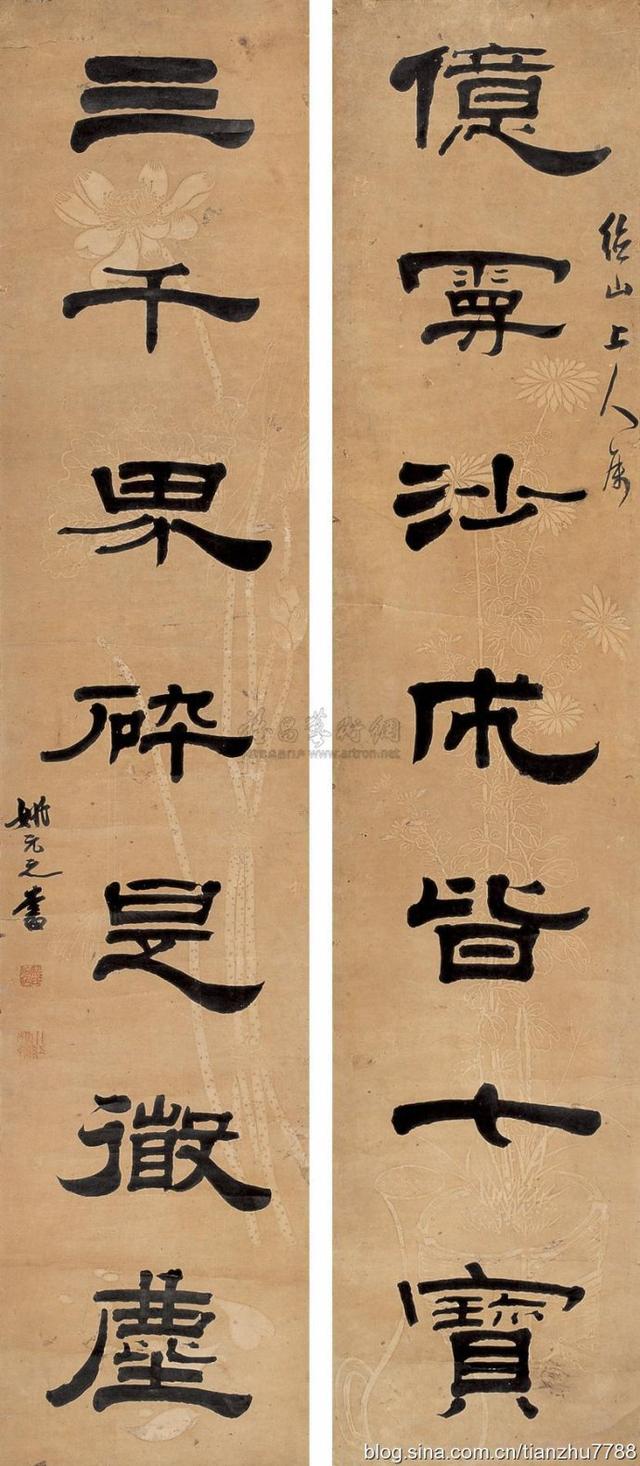 山上人屬
億沙成皆七寶
三千界碎是微塵
姚元之書
雅昌藝術網
www.artron.net
blog.sina.com.cn/tianzhu7788